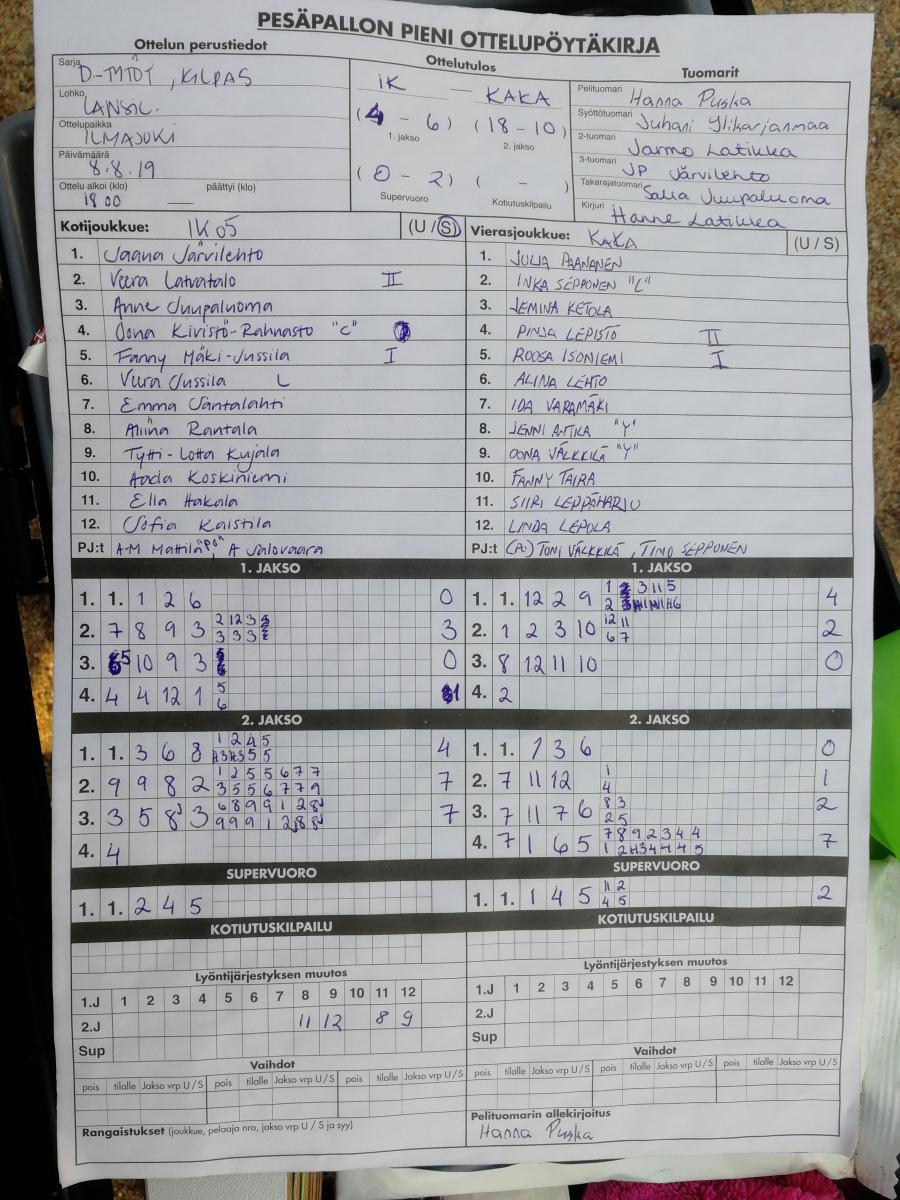 PESÄPALLON PIENI OTTELUPÖYTÄKIRJA
Ottelun perustiedot
Ottelutulos
Tuomarit
Sarja D-TYTÖT, KILPAS
Lohko LÄNSIL.
Ottelupaikka ILMAJOKI
Päivämäärä 8.8.19
Ottelu alkoi (klo) 18 00 päättyi (klo) —
IK — KAKA
(4 - 6) (18 - 10)
1. jakso 2. jakso
(0 - 2) ( - )
Supervuoro Kotiutuskilpailu
Pelituomari Hanna Puska
Syöttötuomari Juhani Ylikarjanmaa
2-tuomari Jarmo Latikka
3-tuomari JP Järvilehto
Takarajatuomari Salla Juupaluoma
Kirjuri Hanne Latikka
Kotijoukkue: IK05 (U / S)
1. Jaana Järvilehto
2. Veera Latvatalo II
3. Anne Juupaluoma
4. Oona Kivistö-Rahnasto "C"
5. Fanny Mäki-Jussila I
6. Vura Jussila L
7. Emma Santalahti
8. Aliina Rantala
9. Tytti-Lotta Kujala
10. Aada Koskiniemi
11. Ella Hakala
12. Sofia Kaistila
PJ:t A-M Mattila "PO", A Salovaara
Vierasjoukkue: KAKA (U / S)
1. JULIA PAANANEN
2. INKA SEPPONEN "L"
3. JEMINA KETOLA
4. PINJA LEPISTÖ II
5. ROOSA ISONIEMI I
6. ALINA LEHTO
7. IDA VARAMÄKI
8. JENNI ANTIKA "Y"
9. OONA VÄLKKILÄ "Y"
10. FANNY TAIRA
11. SIIRI LEPPÄHARJU
12. LINDA LEPOLA
PJ:t (PO) TONI VÄLKKILÄ, TIMO SEPPONEN
1. JAKSO
1. 1. 1 2 6 0
2. 7 8 9 3 2 12 3
3 3 3 3
3. 5 10 9 3 0
4. 4 4 12 1 5 1
6
1. JAKSO
1. 1. 12 2 9 1 3 11 5 4
2
2. 1 2 3 10 12 11 2
6 7
3. 8 12 11 10 0
4. 2
2. JAKSO
1. 1. 3 6 8 1 2 4 5 4
H3 H3 5 5
2. 9 9 8 2 1 2 5 5 6 7 7 7
3 5 5 6 7 7 9
3. 3 5 8 3 6 8 9 9 1 2 8 7
9 9 9 1 2 8 8
4. 4
2. JAKSO
1. 1. 1 3 6 0
2. 7 11 12 1 1
4
3. 7 11 7 6 8 3 2
2 5
4. 7 1 6 5 7 8 9 2 3 4 4 7
1 2 H3 4 4 4 5
SUPERVUORO
1. 1. 2 4 5
SUPERVUORO
1. 1. 1 4 5 11 2 2
4 5
KOTIUTUSKILPAILU
KOTIUTUSKILPAILU
Lyöntijärjestyksen muutos
1.J 1 2 3 4 5 6 7 8 9 10 11 12
2.J 11 12 8 9
Sup
Lyöntijärjestyksen muutos
1.J 1 2 3 4 5 6 7 8 9 10 11 12
2.J
Sup
Vaihdot
pois tilalle Jakso vrp U / S pois tilalle Jakso vrp U / S pois tilalle Jakso vrp U / S
Vaihdot
pois tilalle Jakso vrp U / S pois tilalle Jakso vrp U / S pois tilalle Jakso vrp U / S
Rangaistukset (joukkue, pelaaja nro, jakso vrp U / S ja syy)
Pelituomarin allekirjoitus
Hanna Puska